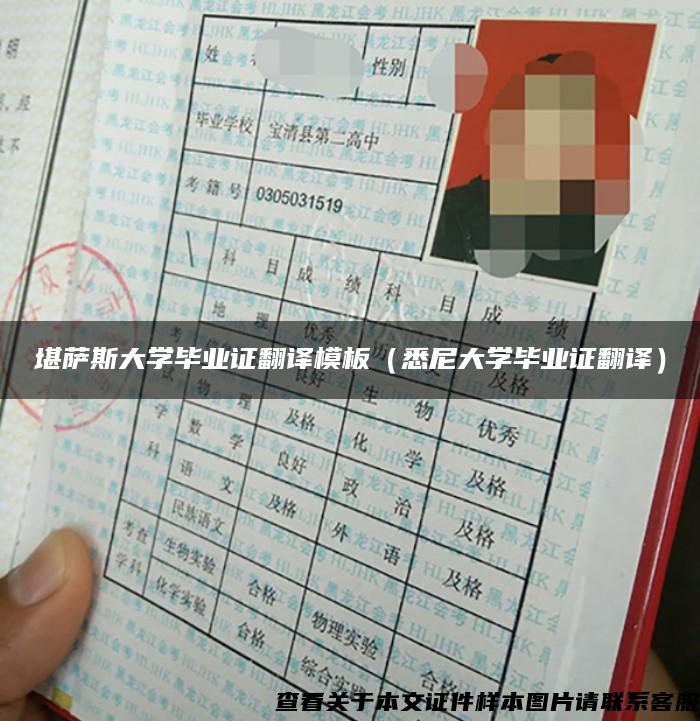 姓 性别
毕业学校 宝清县第二高中
考籍号 0305031519
科目 成绩 科目 成绩
地理 优秀
堪萨斯大学毕业证翻译模板（悉尼大学毕业证翻译）
良好 及格
物理 及格 生物 优秀
数学 良好 化学 及格
语文 及格 政治 及格
民族语文 外语 及格
考查 生物实验 合格 物理实验
学科 化学实验 合格 综合实 合格
查看关于本文证件样本图片请联系客服